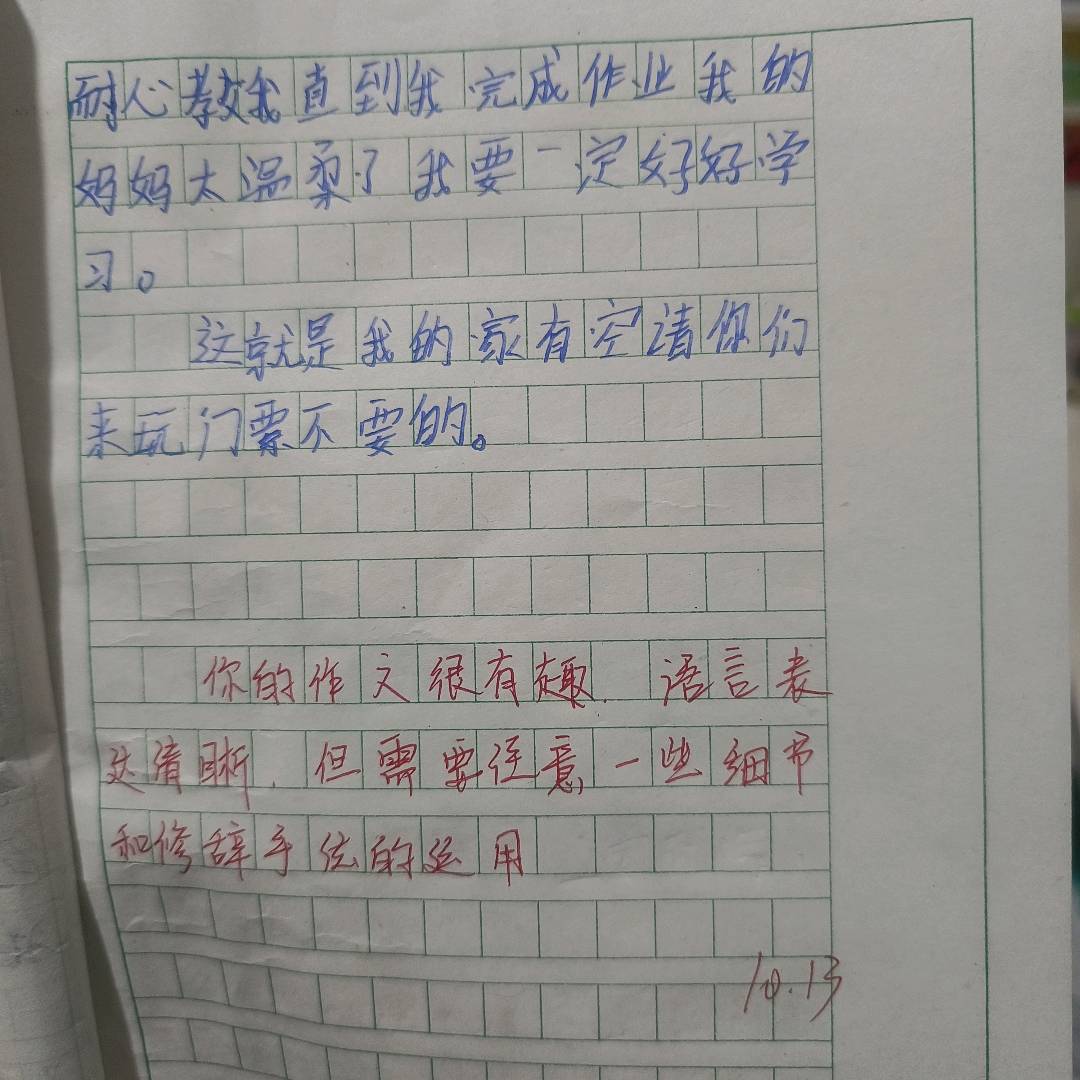 耐心教我直到我完成作业我的
妈妈太温柔了我要一定好好学
习。
这就是我的家有空请你们
来玩门票不要的。
你的作文很有趣.语言表
达清晰.但需要注意一些细节
和修辞手法的运用
10.13